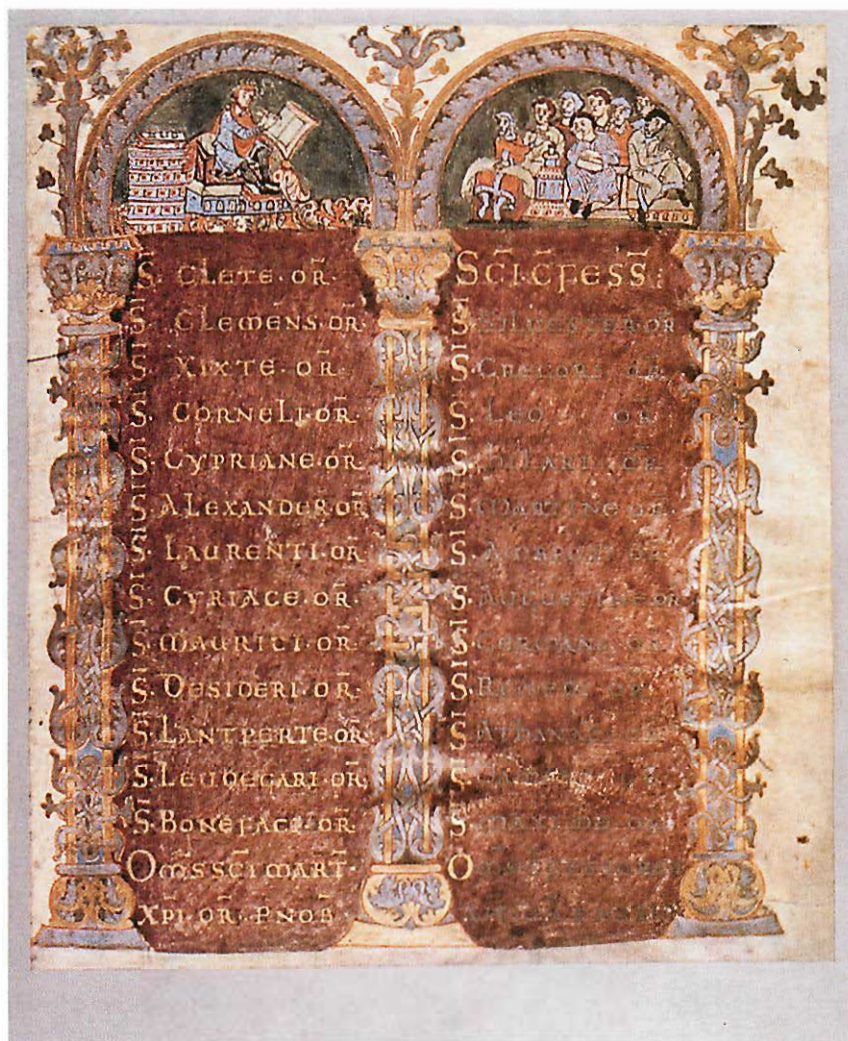 S̄. CLETE. OR̄.
S̄. CLEMENS. OR̄.
S̄. XIXTE. OR̄.
S̄. CORNELI. OR̄.
S̄. CYPRIANE. OR̄.
S̄. ALEXANDER. OR̄
S̄. LAURENTI. OR̄.
S̄. CYRIACE. OR̄.
S̄. MAURICI. OR̄.
S̄. DESIDERI. OR̄.
S̄. LANTPERTE. OR̄
S̄. LEUDEGARI. OR̄.
S̄. BONEFACI. OR̄.
OM̄S SC̄I MART̄.
XP̄I. OR̄. P NOB̄.
SC̄I. C̄FESS̄.
S̄. SILVESTER. OR̄
S̄. GREGORI OR̄.
S̄. LEO OR̄.
S̄. HILARI. OR̄.
S̄. MARTINE OR̄.
S̄.
S̄. AUGUSTINE. OR̄
S̄. GERMANE OR̄
S̄. REMEGI. OR̄.
S̄. ATHANASI. OR̄
S̄. OR̄
S̄. OR̄
O